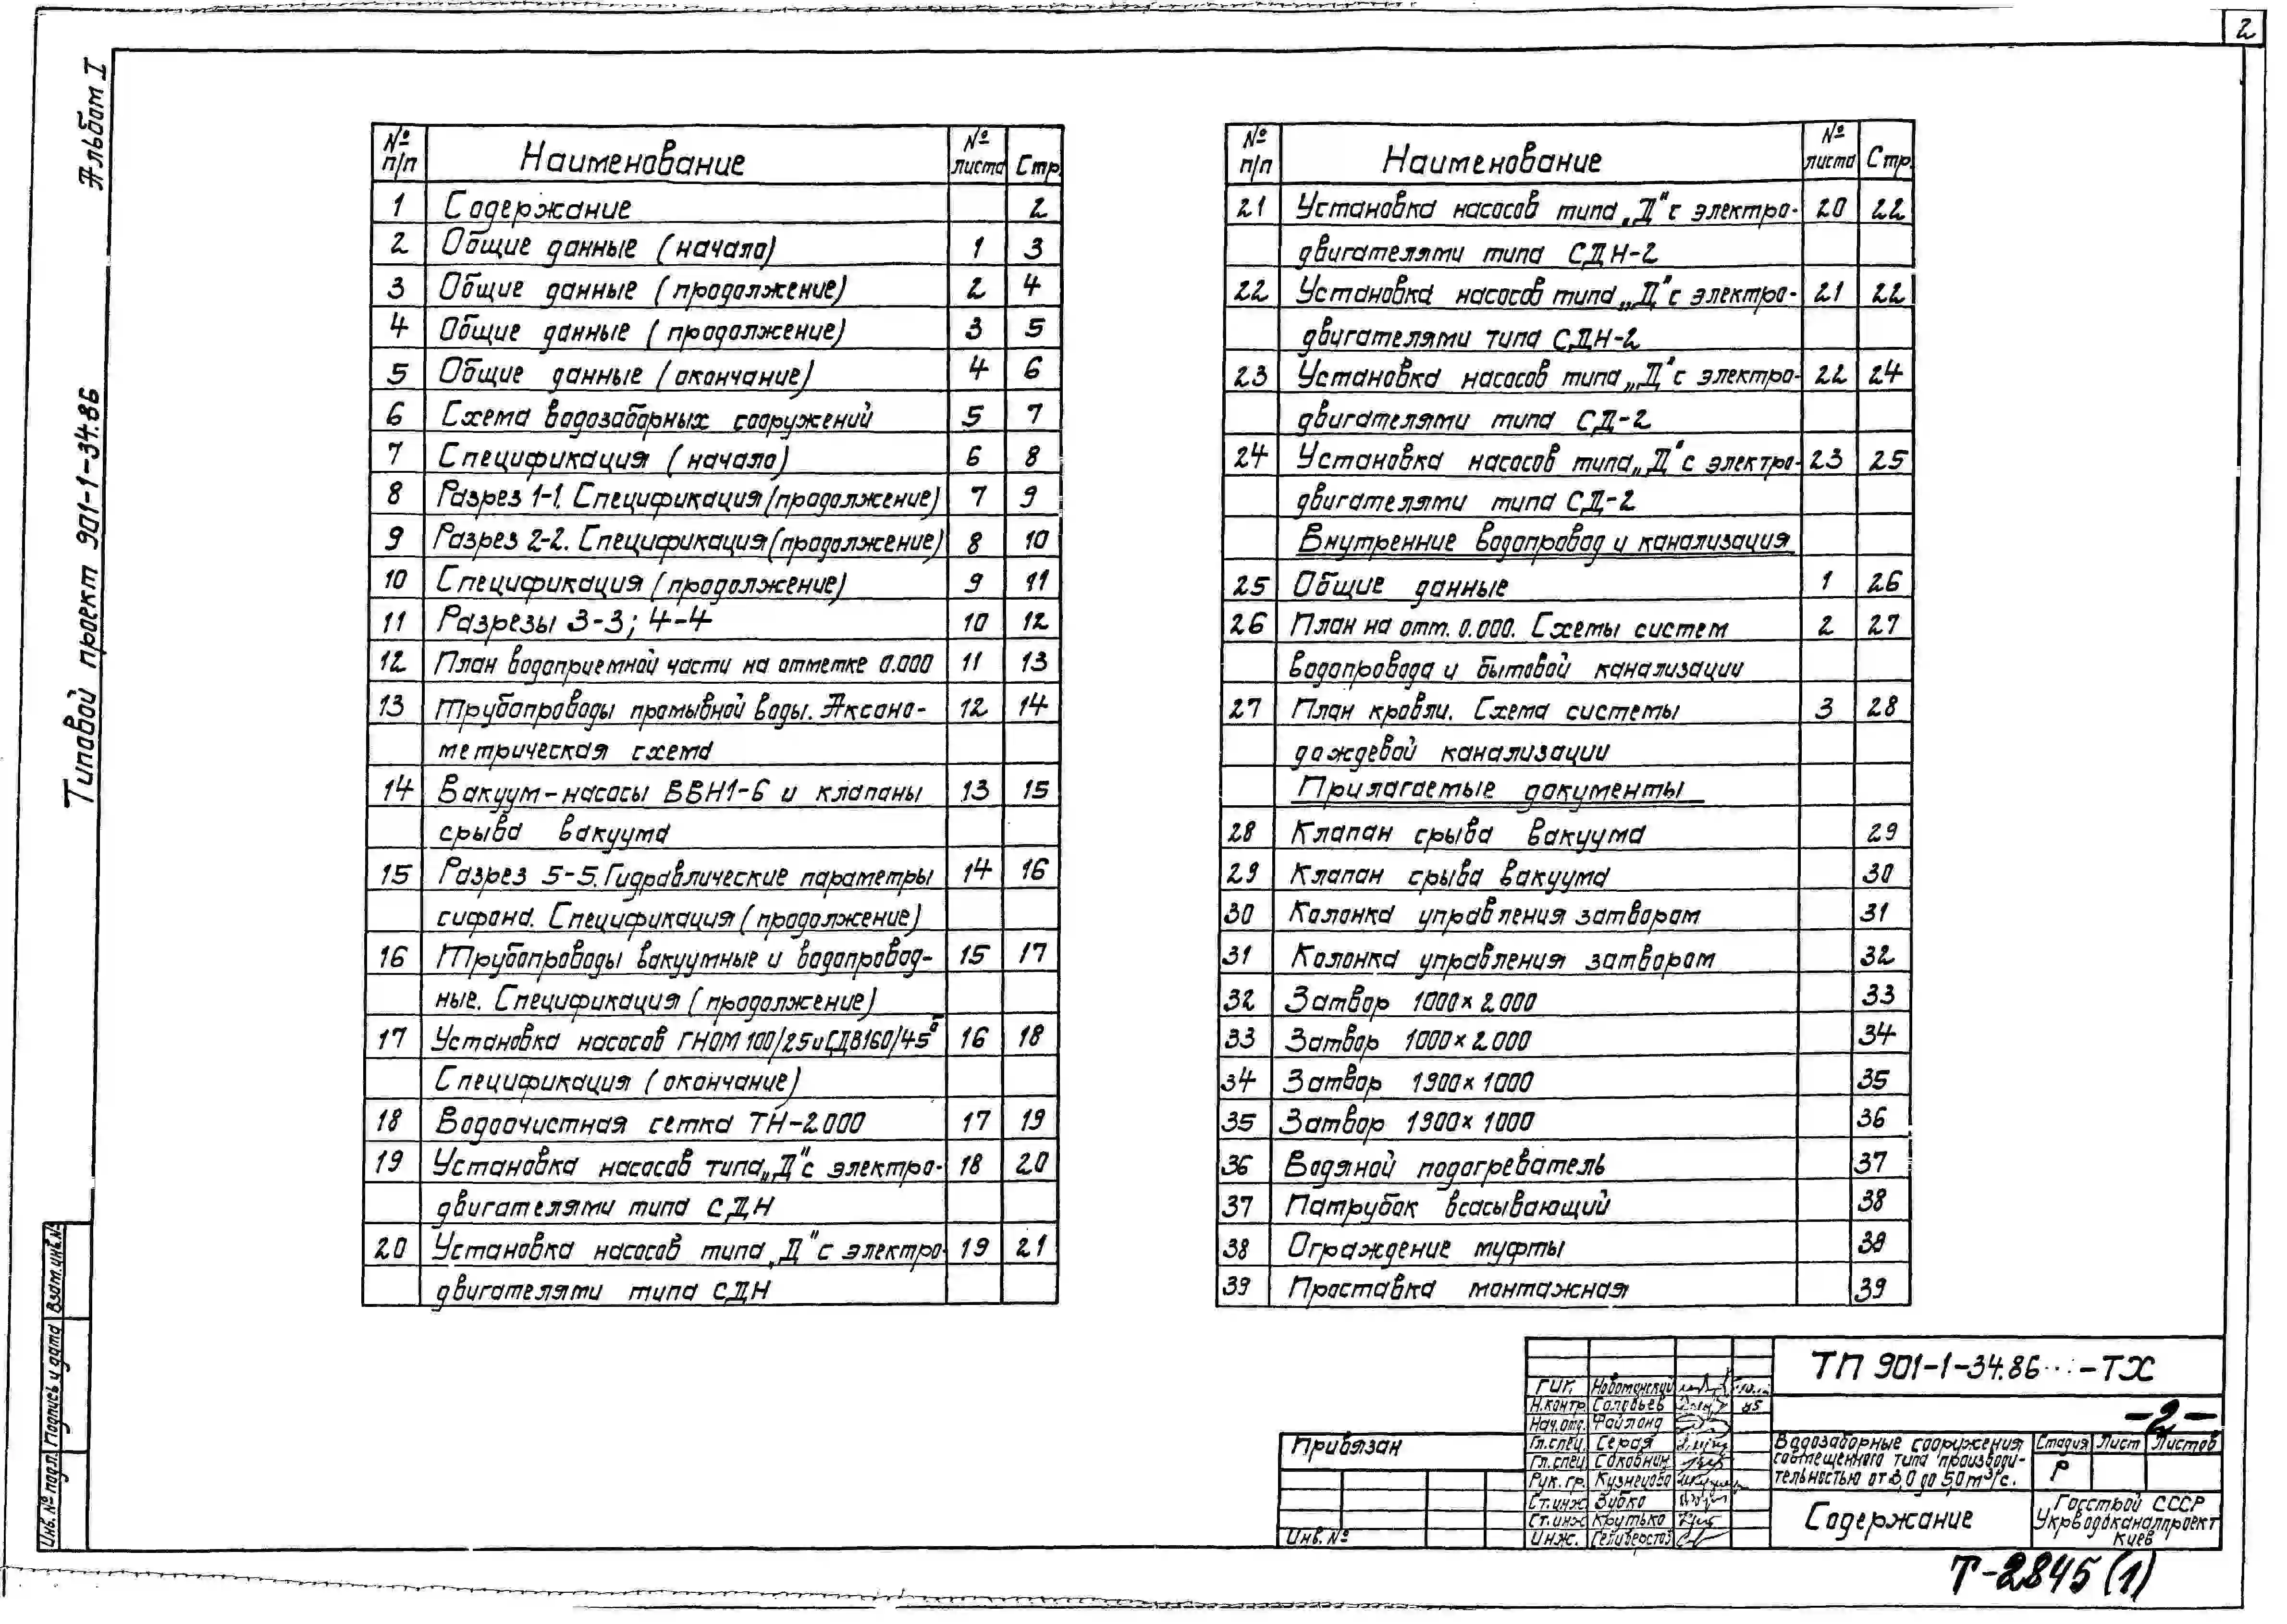 2
Альбом I
Типовой проект 901-1-34.86
№ п/п Наименование № листа Стр.
1 Содержание 2
2 Общие данные (начало) 1 3
3 Общие данные (продолжение) 2 4
4 Общие данные (продолжение) 3 5
5 Общие данные (окончание) 4 6
6 Схема водозаборных сооружений 5 7
7 Спецификация (начало) 6 8
8 Разрез 1-1. Спецификация (продолжение) 7 9
9 Разрез 2-2. Спецификация (продолжение) 8 10
10 Спецификация (продолжение) 9 11
11 Разрезы 3-3; 4-4 10 12
12 План водоприемной части на отметке 0.000 11 13
13 Трубопроводы промывной воды. Аксоно- 12 14
метрическая схема
14 Вакуум-насосы ВВН1-6 и клапаны 13 15
срыва вакуума
15 Разрез 5-5. Гидравлические параметры 14 16
сифона. Спецификация (продолжение)
16 Трубопроводы вакуумные и водопровод- 15 17
ные. Спецификация (продолжение)
17 Установка насосов ГНОМ 100/25 и СДВ160/45б 16 18
Спецификация (окончание)
18 Водоочистная сетка ТН-2000 17 19
19 Установка насосов типа „Д" с электро- 18 20
двигателями типа СДН
20 Установка насосов типа „Д" с электро- 19 21
двигателями типа СДН
№ п/п Наименование № листа Стр.
21 Установка насосов типа „Д" с электро- 20 22
двигателями типа СДН-2
22 Установка насосов типа „Д" с электро- 21 22
двигателями типа СДН-2
23 Установка насосов типа „Д" с электро- 22 24
двигателями типа СД-2
24 Установка насосов типа „Д" с электро- 23 25
двигателями типа СД-2
Внутренние водопровод и канализация
25 Общие данные 1 26
26 План на отм. 0.000. Схемы систем 2 27
водопровода и бытовой канализации
27 План кровли. Схема системы 3 28
дождевой канализации
Прилагаемые документы
28 Клапан срыва вакуума 29
29 Клапан срыва вакуума 30
30 Колонка управления затвором 31
31 Колонка управления затвором 32
32 Затвор 1000×2000 33
33 Затвор 1000×2000 34
34 Затвор 1900×1000 35
35 Затвор 1900×1000 36
36 Водяной подогреватель 37
37 Патрубок всасывающий 38
38 Ограждение муфты 38
39 Проставка монтажная 39
Взам. инв. №
Подпись и дата
Инв. № подл.
Привязан
Инв. №
ГИП
Н.контр. Соловьев 85
Нач. отд. Файланд
Гл. спец. Серая
Гл. спец. Соковнин
Рук. гр. Кузнецова
Ст. инж. Зубко
Ст. инж. Крутько
Инж.
ТП 901-1-34.86 -ТХ
-2-
Водозаборные сооружения
совмещенного типа производи-
тельностью от 3,0 до 5,0 м³/с.
Стадия Лист Листов
Р
Содержание
Госстрой СССР
Укрводоканалпроект
Киев
Т-2845(1)